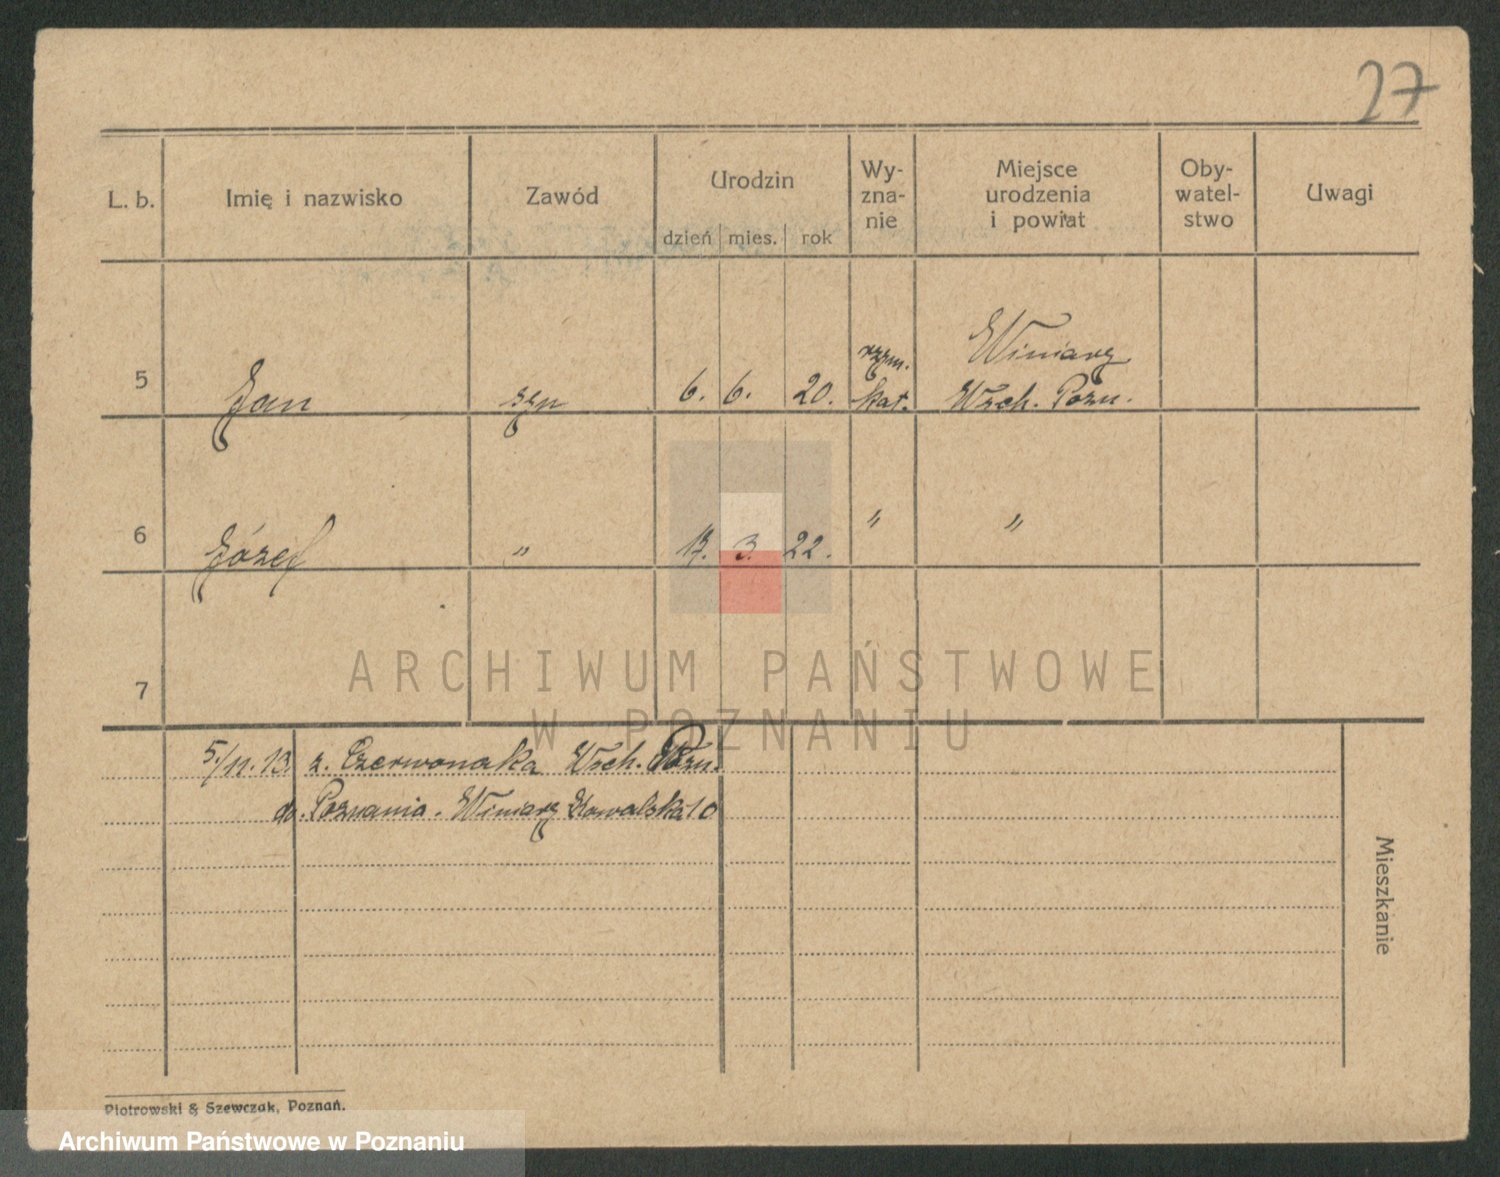 27
L. b. Imię i nazwisko Zawód Urodzin dzień mies. rok Wy-zna-nie Miejsce urodzenia i powiat Oby-watel-stwo Uwagi
rzym. Winiary
5 Jan syn 6. 6. 20. kat. Wsch. Pozn.
6 Józef " 17. 3. 22. " "
7
ARCHIWUM PAŃSTWOWE
W POZNANIU
5./11. 13. z. Czerwonaka Wsch. Pozn.
do. Poznania. Winiary Kowalska 10
Mieszkanie
Piotrowski & Szewczak, Poznań.
Archiwum Państwowe w Poznaniu